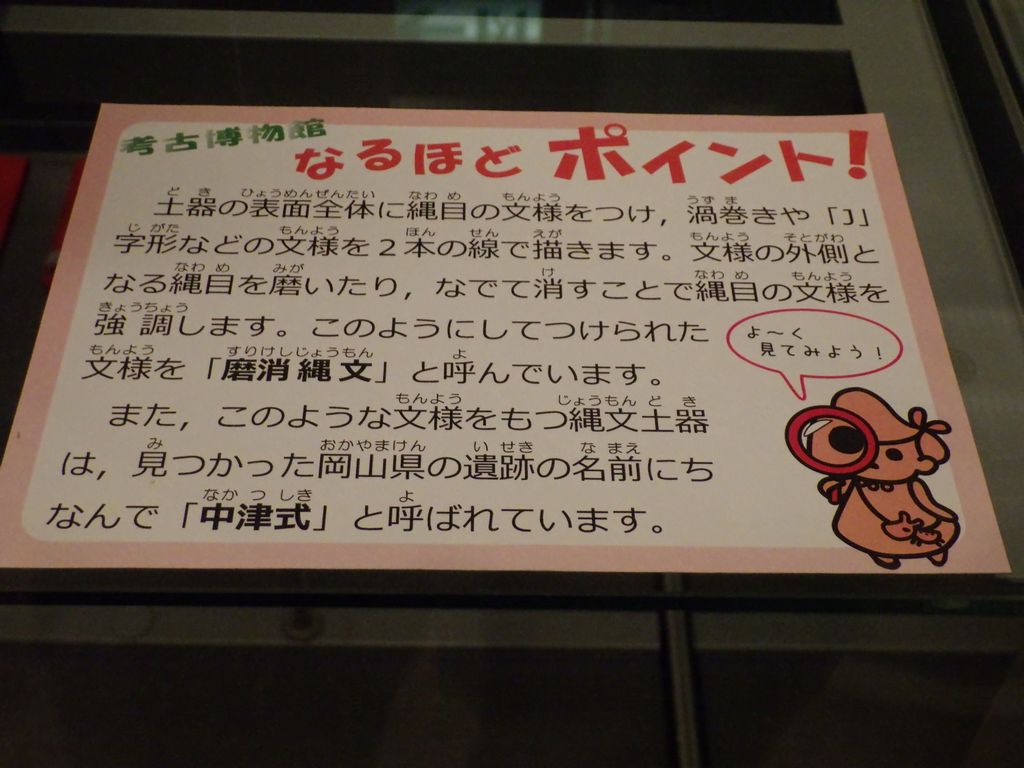 考古博物館
なるほど ポイント!
土器の表面全体に縄目の文様をつけ，渦巻きや「J」
字形などの文様を２本の線で描きます。文様の外側と
なる縄目を磨いたり，なでて消すことで縄目の文様を
強調します。このようにしてつけられた
文様を「磨消縄文」と呼んでいます。
また，このような文様をもつ縄文土器
は，見つかった岡山県の遺跡の名前にち
なんで「中津式」と呼ばれています。
よ～く
見てみよう！